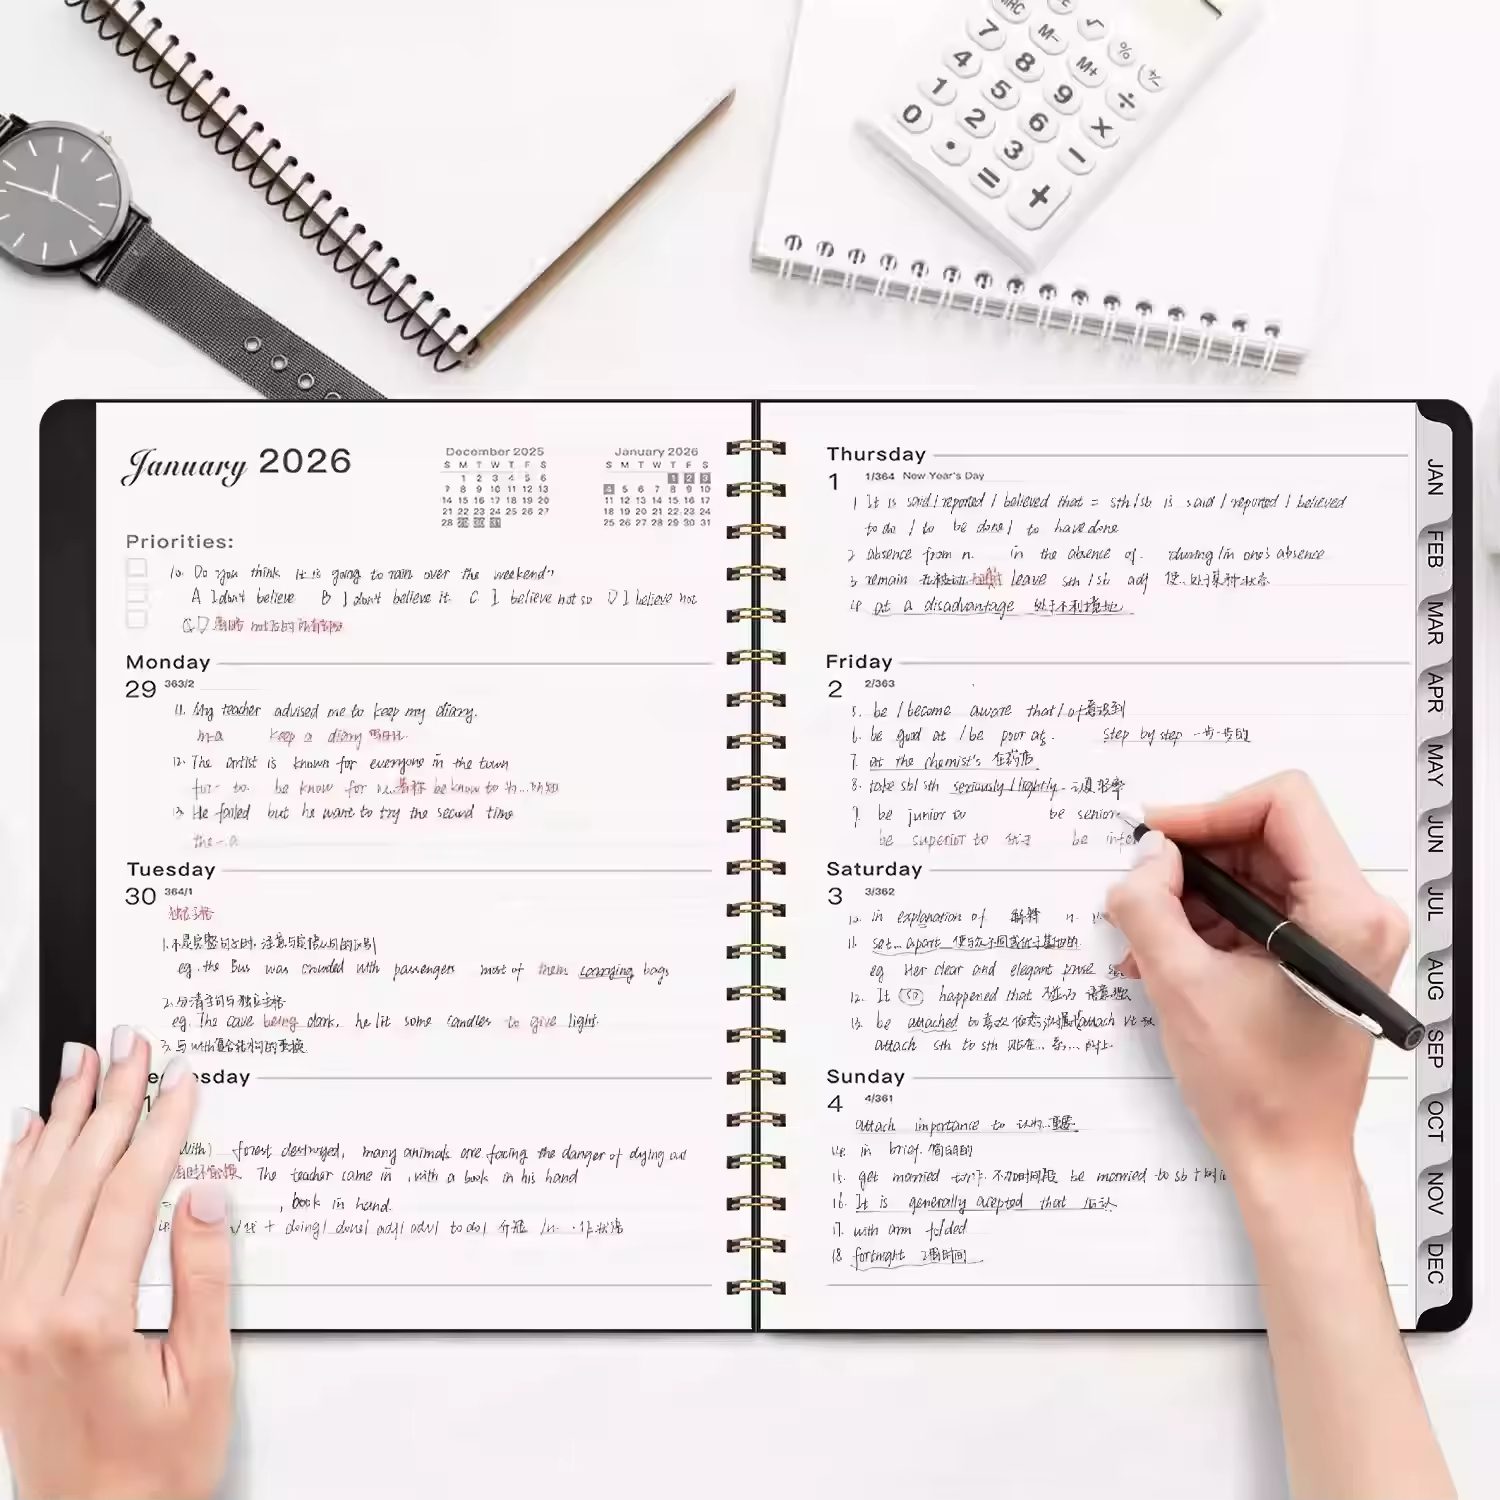 MRC √ % +/-
7 M-
4 8 M+ ÷
1 5 9 ×
0 2 6 −
. 3
= +
January 2026
December 2025
S M T W T F S
1 2 3 4 5 6
7 8 9 10 11 12 13
14 15 16 17 18 19 20
21 22 23 24 25 26 27
28 29 30 31
January 2026
S M T W T F S
1 2 3
4 5 6 7 8 9 10
11 12 13 14 15 16 17
18 19 20 21 22 23 24
25 26 27 28 29 30 31
Priorities:
10. Do you think it is going to rain over the weekend?
A I don't believe B I don't believe it C I believe not so D I believe not
Monday
29 363/2
11. My teacher advised me to keep my diary.
m-a keep a diary 写日记.
12. The artist is known for everyone in the town
for - to be know for 著称 be know to 为...所知
13 He failed but he want to try the second time
the - a
Tuesday
30 364/1
独立主格
1.不是完整句子时,注意与
eg. the Bus was crowded with passengers most of them bags
2.分清主句与独立主格
eg. The cave being dark, he lit some candles to give light.
3.与with复合结构的
esday
1
With) forest destroyed, many animals are facing the danger of dying out
The teacher came in , with a book in his hand
, book in hand.
+ doing/ done/ adj/ adv/ to do/ 介短
Thursday
1 1/364 New Year's Day
1 It is said/reported / believed that = sth/sb is said / reported / believed
to do / to be done/ to have done
2 absence from n. in the absence of. during/in one's absence
3 remain leave sth/sb adj 使..处于某种状态
4 at a disadvantage 处于不利境地
Friday
2 2/363
5. be / become aware that/of 意识到
6. be good at / be poor at. step by step 一步一步的
7. at the chemist's 在药店
8. take sb/sth seriously/lightly.
9. be junior to be senior
be superior to 优于 be
Saturday
3 3/362
10. in explanation of 解释
11. set... apart
eg Her clear and elegant prose
12. It so happened that
13. be attached to attach
attach sth to sth
Sunday
4 4/361
attach importance to 认为..重要
14. in brief. 简明的
15. get married 不加时间段 be married to sb
16. It is generally acepted that 公认
17. with arm folded
18 fortnight 2周时间
JAN
FEB
MAR
APR
MAY
JUN
JUL
AUG
SEP
OCT
NOV
DEC